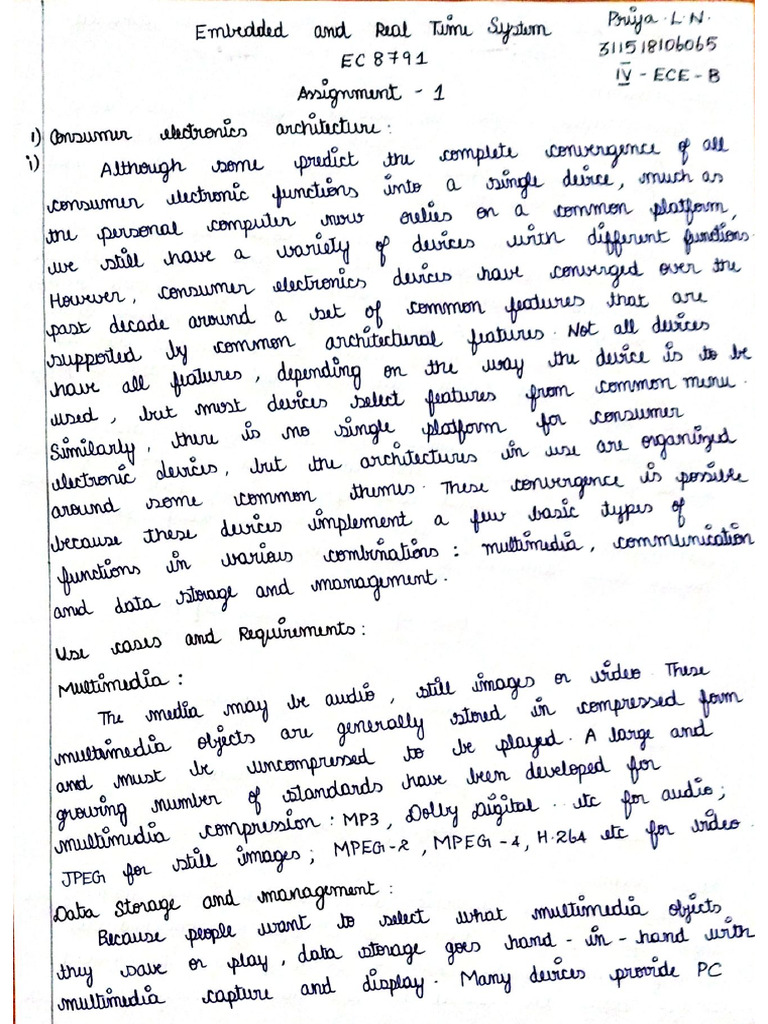 Embedded and Real Time System
Priya . L . N .
311518106065
EC 8791
IV - ECE - B
Assignment - 1
1) Consumer electronics architecture :
i) Although some predict the complete convergence of all
consumer electronic functions into a single device, much as
the personal computer now relies on a common platform,
we still have a variety of devices with different functions.
However, consumer electronics devices have converged over the
past decade around a set of common features that are
supported by common architectural features. Not all devices
have all features, depending on the way the device is to be
used, but most devices select features from common menu.
Similarly, there is no single platform for consumer
electronic devices, but the architectures in use are organized
around some common themes. These convergence is possible
because these devices implement a few basic types of
functions in various combinations : multimedia, communication
and data storage and management.
Use cases and Requirements :
Multimedia :
The media may be audio, still images or video. These
multimedia objects are generally stored in compressed form
and must be uncompressed to be played. A large and
growing number of standards have been developed for
multimedia compression : MP3, Dolby Digital .. etc for audio;
JPEG for still images; MPEG-2, MPEG-4, H.264 etc for video.
Data Storage and management :
Because people want to select what multimedia objects
they save or play, data storage goes hand - in - hand with
multimedia capture and display. Many devices provide PC